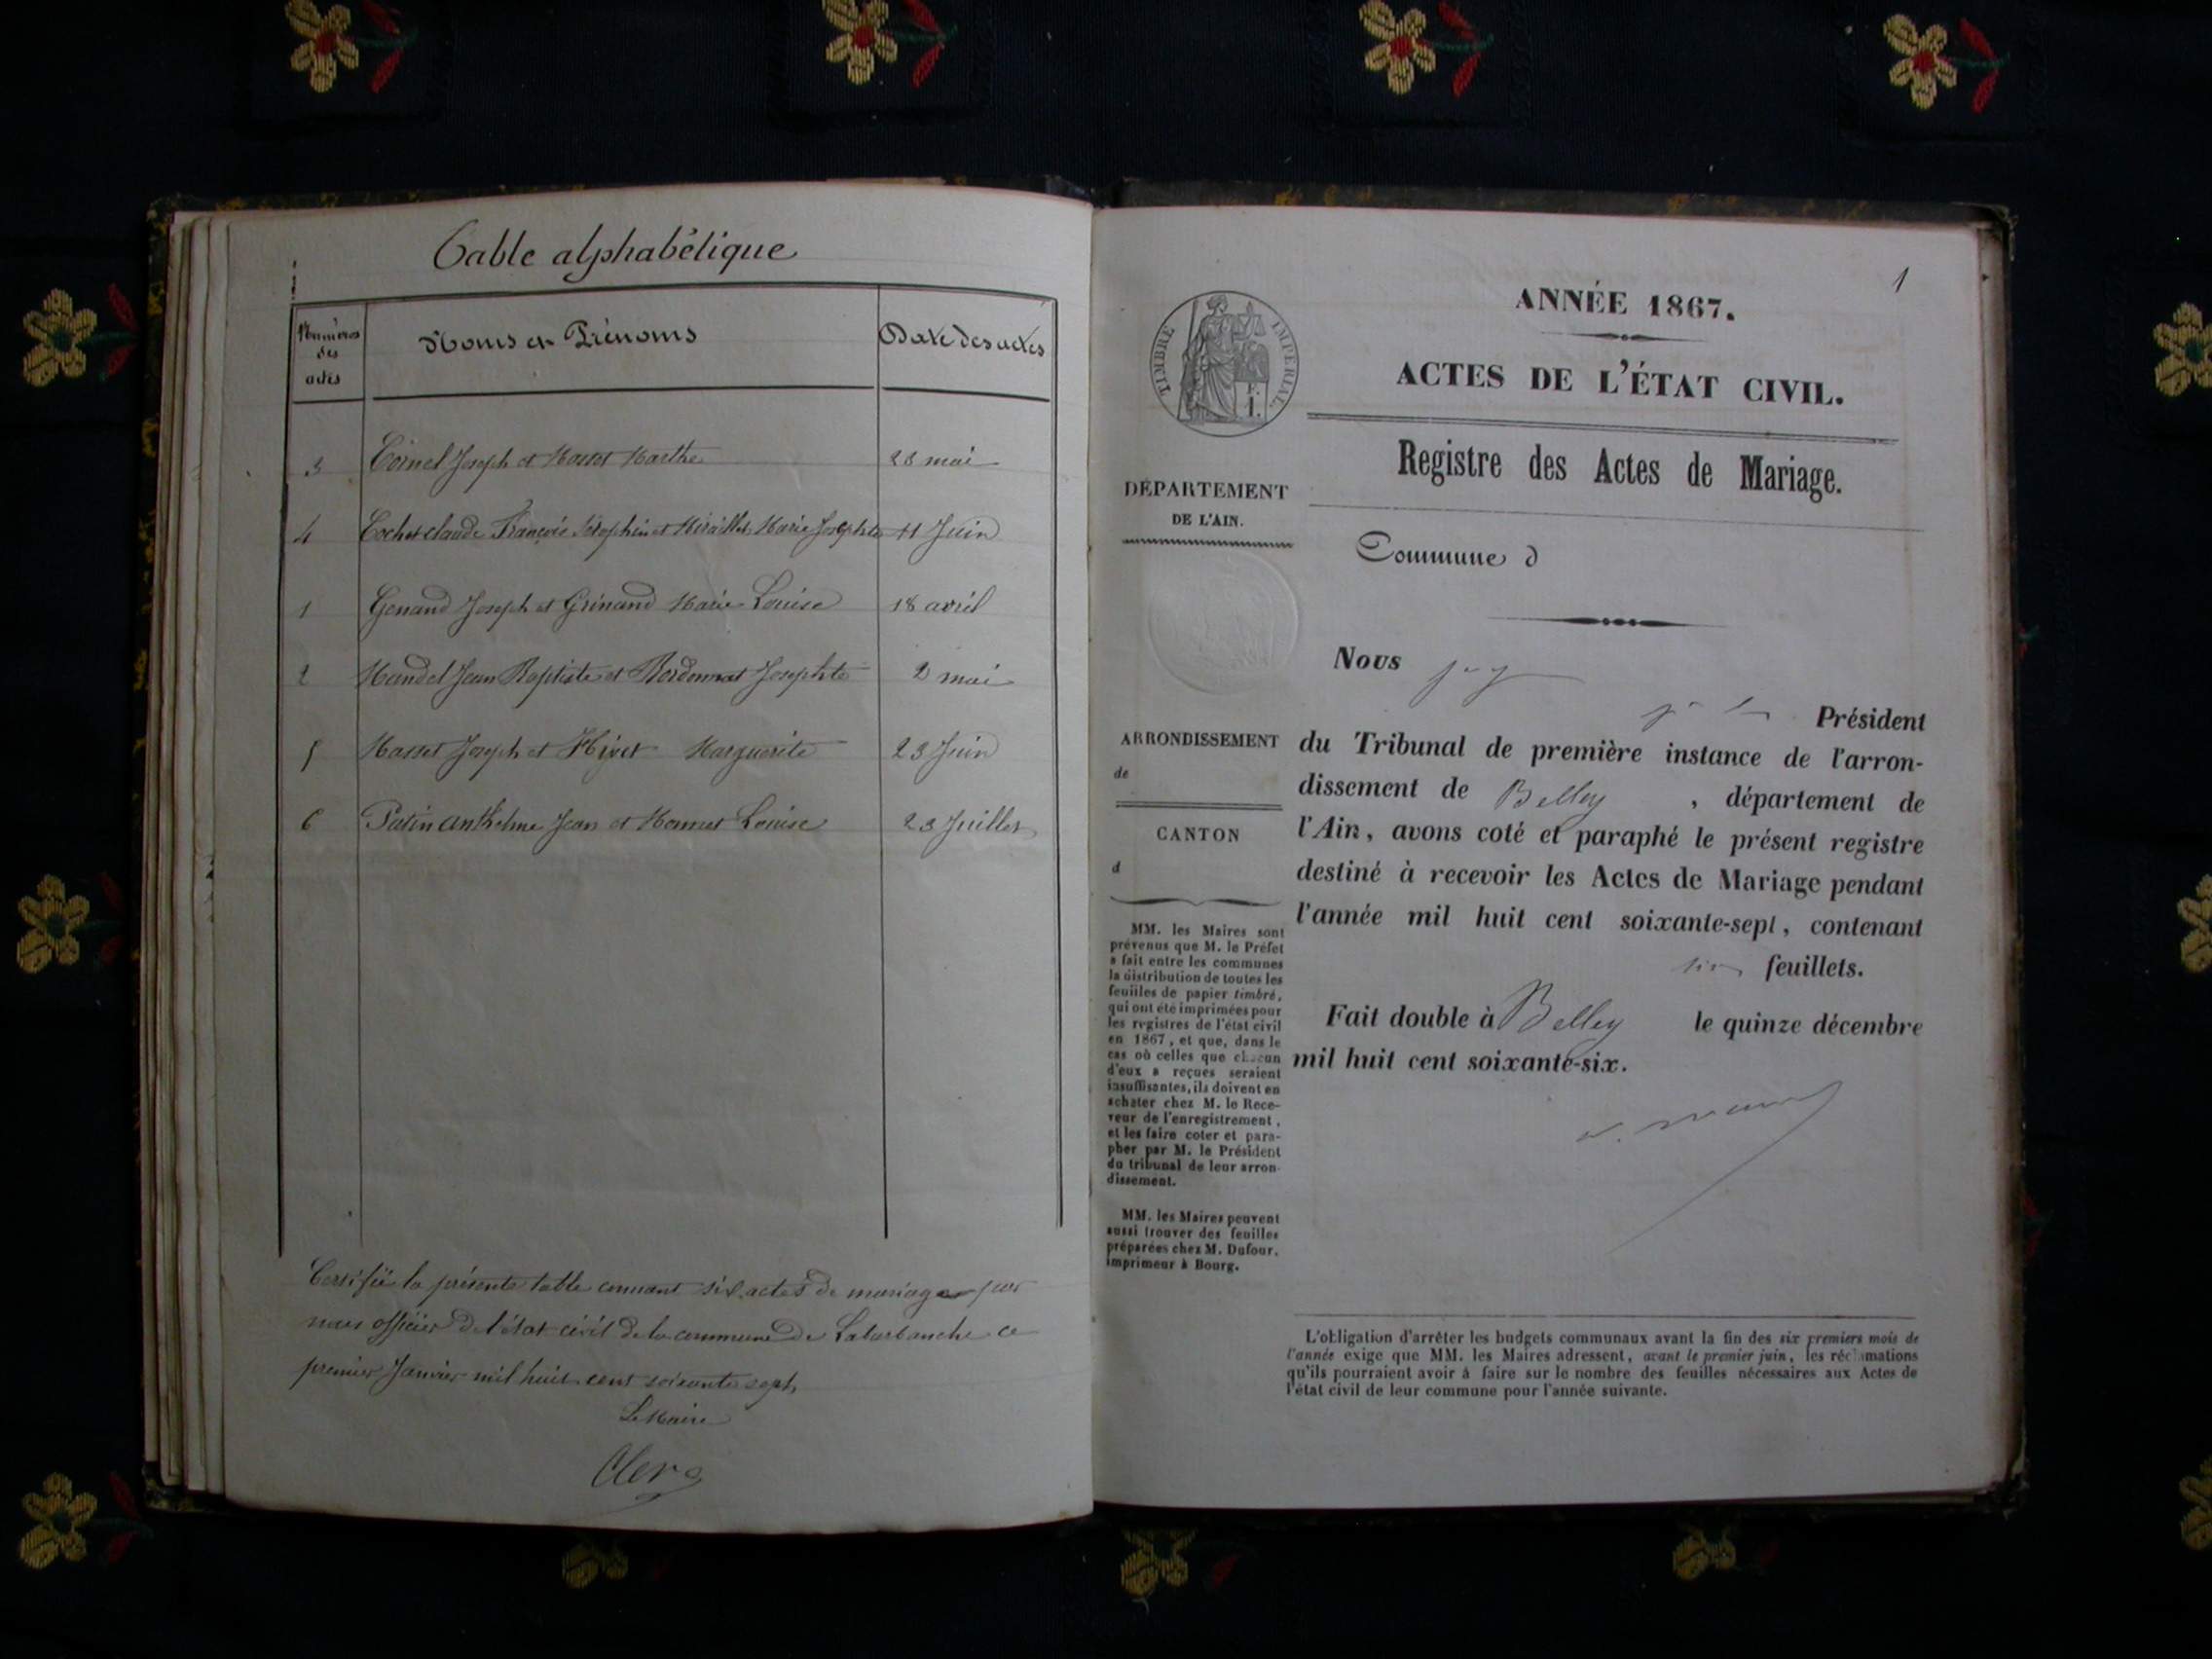 Table alphabétique
Numéros des actes
Noms et Prénoms
Date des actes
3 Cornel Joseph et Masset Marthe 28 mai
4 Cochet claude François Séraphin et Marie Josephte 11 Juin
1 Genand Joseph et Grinand Marie Louise 18 avril
2 Mandel Jean Baptiste et Josephte 2 mai
5 Masset Joseph et Marguerite 23 Juin
6 Patin anthelme Jean et Monnet Louise 23 Juillet
Certifié la présente table contenant six actes de mariage par
nous officier de l'état civil de la commune de Laburbanche ce
premier Janvier mil huit cent soixante sept
Le Maire
Clerc
1
ANNÉE 1867.
ACTES DE L'ÉTAT CIVIL.
TIMBRE IMPERIAL.
Registre des Actes de Mariage.
DÉPARTEMENT
DE L'AIN.
Commune d
Nous
Président
du Tribunal de première instance de l'arron-
dissement de Belley , département de
l'Ain, avons coté et paraphé le présent registre
destiné à recevoir les Actes de Mariage pendant
l'année mil huit cent soixante-sept, contenant
six feuillets.
Fait double à Belley le quinze décembre
mil huit cent soixante-six.
ARRONDISSEMENT
de
CANTON
d
MM. les Maires sont
prévenus que M. le Préfet
a fait entre les communes
la distribution de toutes les
feuilles de papier timbré,
qui ont été imprimées pour
les registres de l'état civil
en 1867, et que, dans le
cas où celles que chacun
d'eux a reçues seraient
insuffisantes, ils doivent en
acheter chez M. le Rece-
veur de l'enregistrement,
et les faire coter et para-
pher par M. le Président
du tribunal de leur arron-
dissement.
MM. les Maires peuvent
aussi trouver des feuilles
préparées chez M. Dufour,
imprimeur à Bourg.
L'obligation d'arrêter les budgets communaux avant la fin des six premiers mois de
l'année exige que MM. les Maires adressent, avant le premier juin, les réclamations
qu'ils pourraient avoir à faire sur le nombre des feuilles nécessaires aux Actes de
l'état civil de leur commune pour l'année suivante.